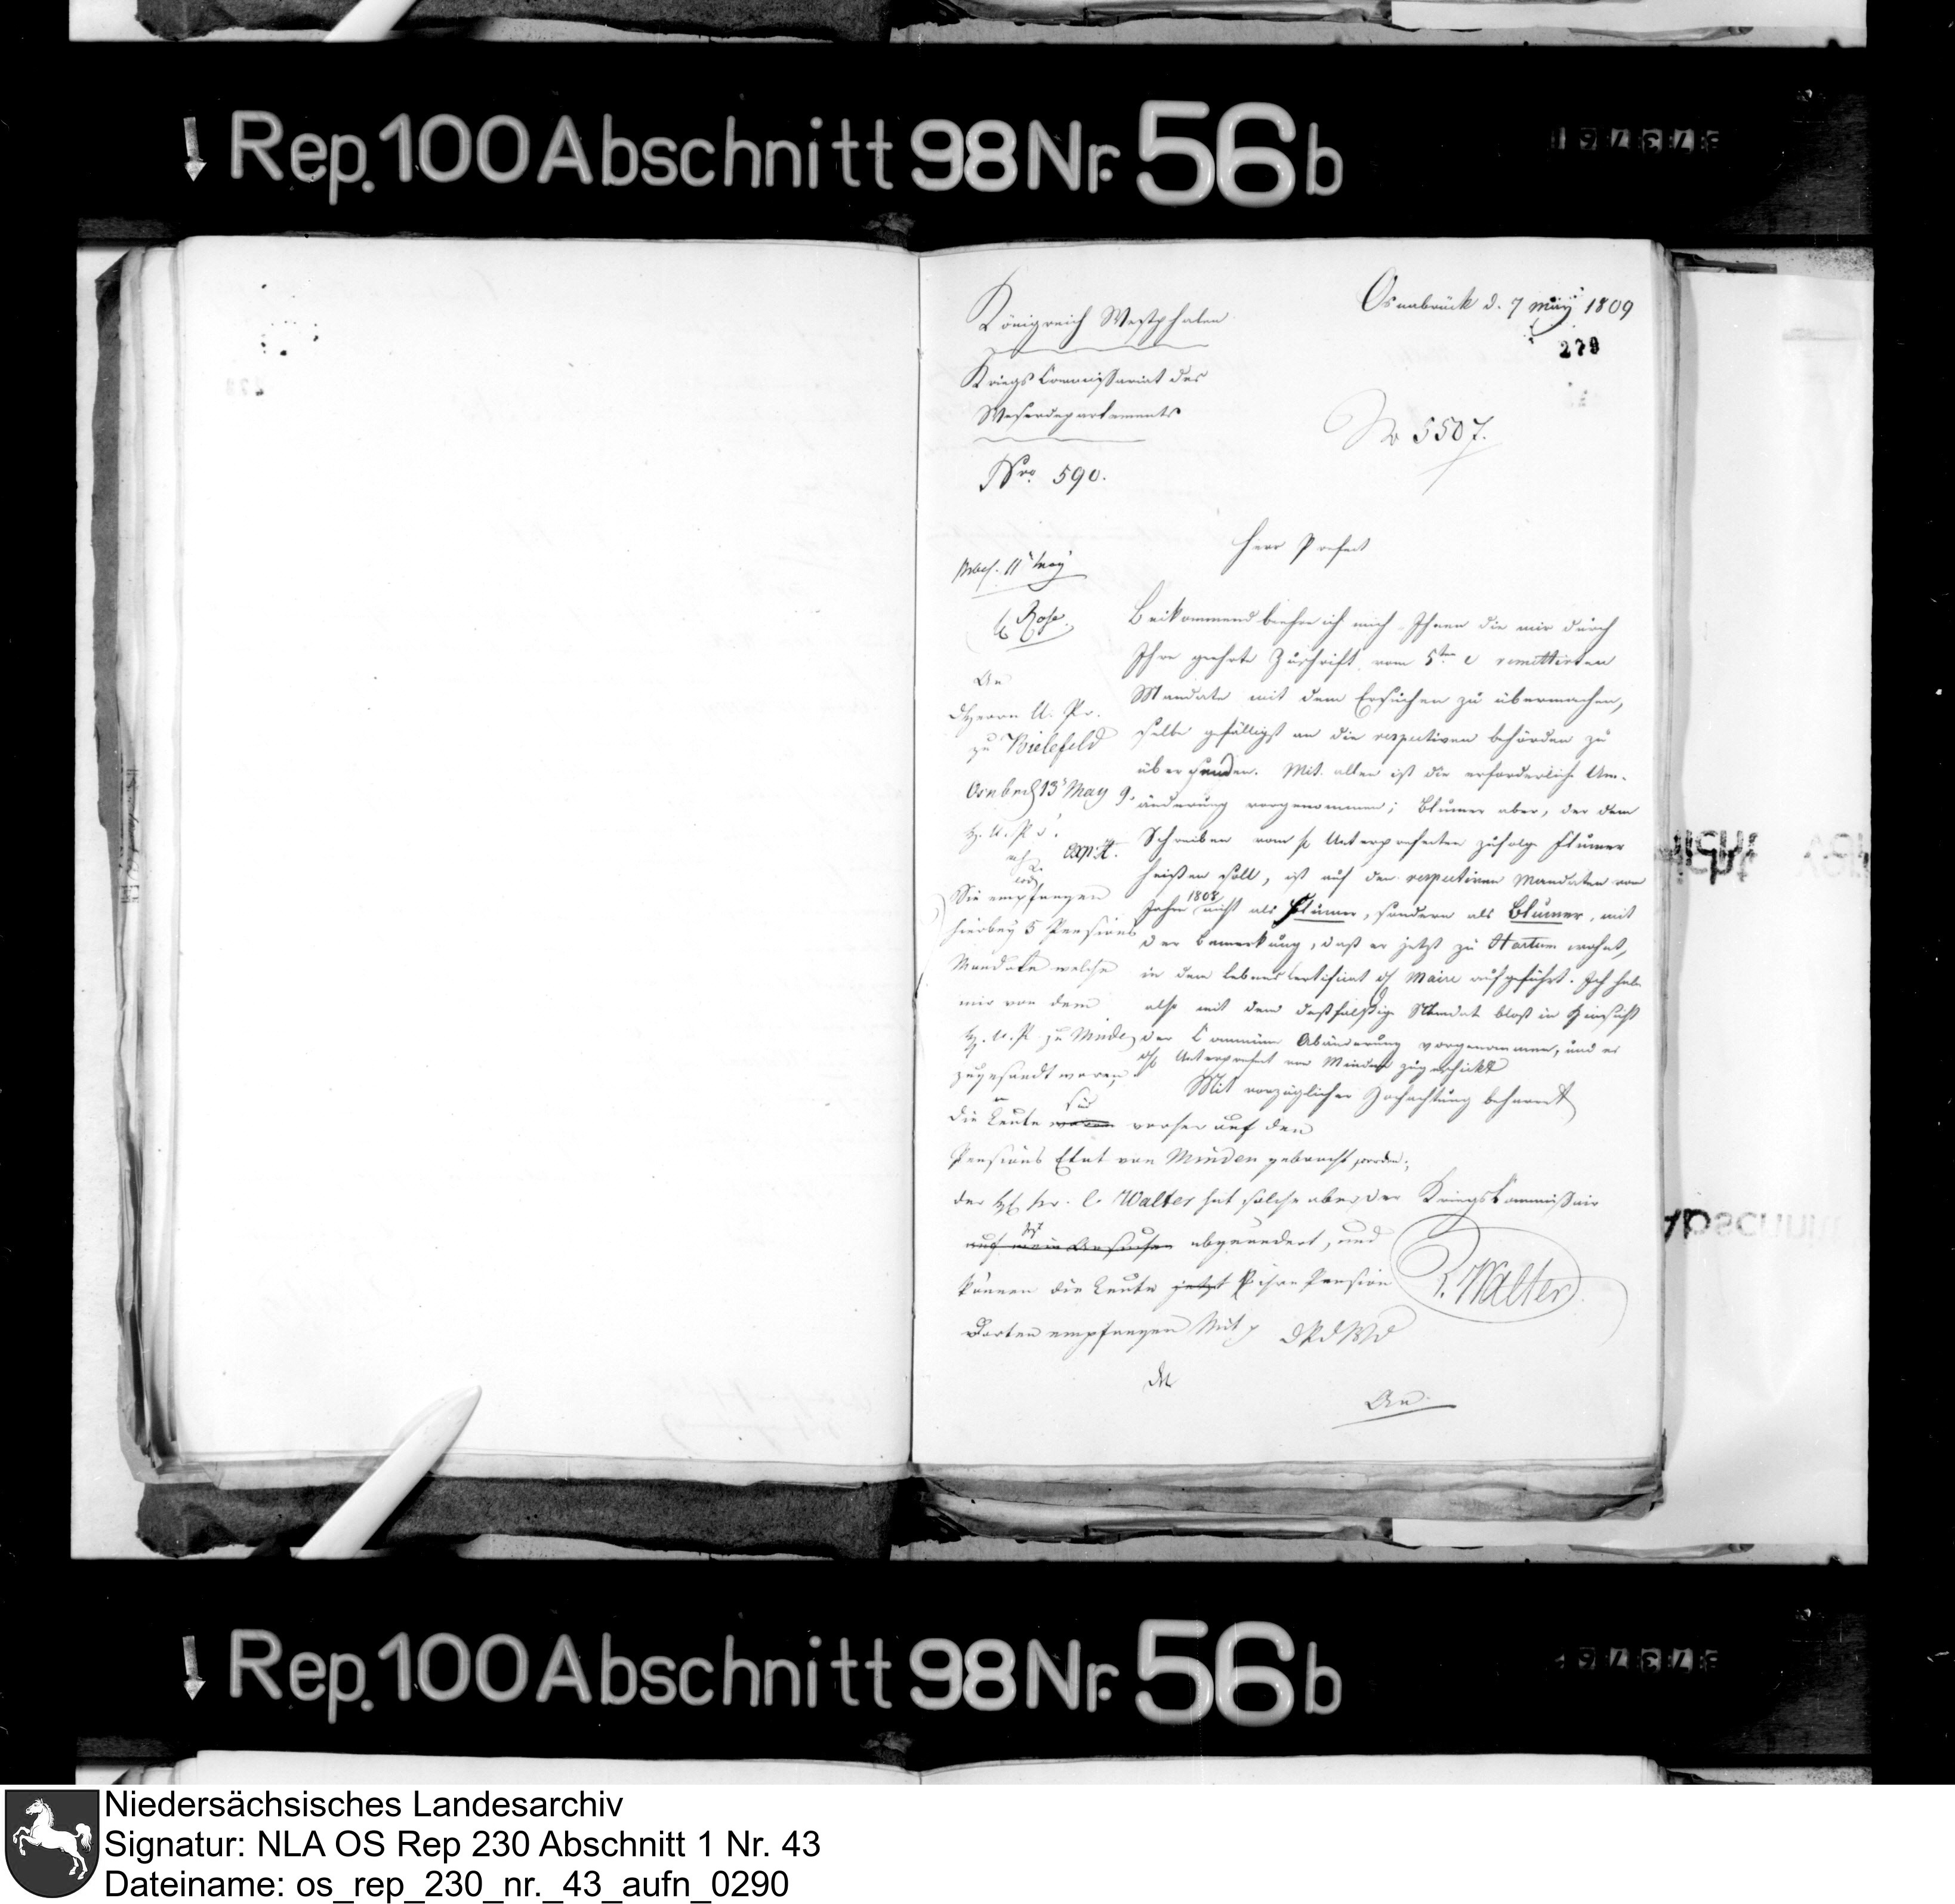 Rep. 100 Abschnitt 98 Nr. 56 b
Osnabrück d. 7 May 1809
279
Königreich Westphalen
Kriegs Commissariat des
Weserdepartements
No 5507.
Nro. 590.
Herr Praefect
Beikommend beehre ich mich Ihnen die mir durch
Ihre geehrte Zuschrift vom 5ten c remittirten
Mandate mit dem Ersuchen zu übermachen,
selbe gefälligst an die respectiven behörden zu
übersenden. Mit allen ist die erforderliche Um-
änderung vorgenommen; Blümer aber, der dem
Schreiben vom Unterpraefecten zufolge Flümer
heißen soll, ist auf den respectiven Mandaten von
Jahr 1808 nicht als Flümer, sondern als Blümer, mit
der Bemerkung, daß er jetzt zu Hartum wohnt,
in dem Lebens Certificat Maire aufgeführt. Ich habe
also mit dem desfalsige Mandat blos in Hinsicht
der Commune Abänderung vorgenommen, und es
Unterpraefect von Minden zugeschickt
Mit vorzüglicher Hochachtung beharret
der Kriegs Commissair
R. Walter
An
11 May
Rose
An
d Herrn U. Pr.
zu Bielefeld
Osnbrck 13 May 9.
H. U. Pr.
exp.
Sie empfangen
hierbey 5 Pensions
Mandate welche
mir von dem
H. U. P. zu Minden
zugesandt waren
die Leute waren vorher auf den
Pensions Etat von Minden gebracht worden;
der Kr. C. Walter hat solche aber
auf mein Ansuchen abgeändert, und
können die Leute jetzt ihre Pension
dorten empfangen Mit
DPdWD
Rep. 100 Abschnitt 98 Nr. 56 b
Niedersächsisches Landesarchiv
Signatur: NLA OS Rep 230 Abschnitt 1 Nr. 43
Dateiname: os_rep_230_nr._43_aufn_0290